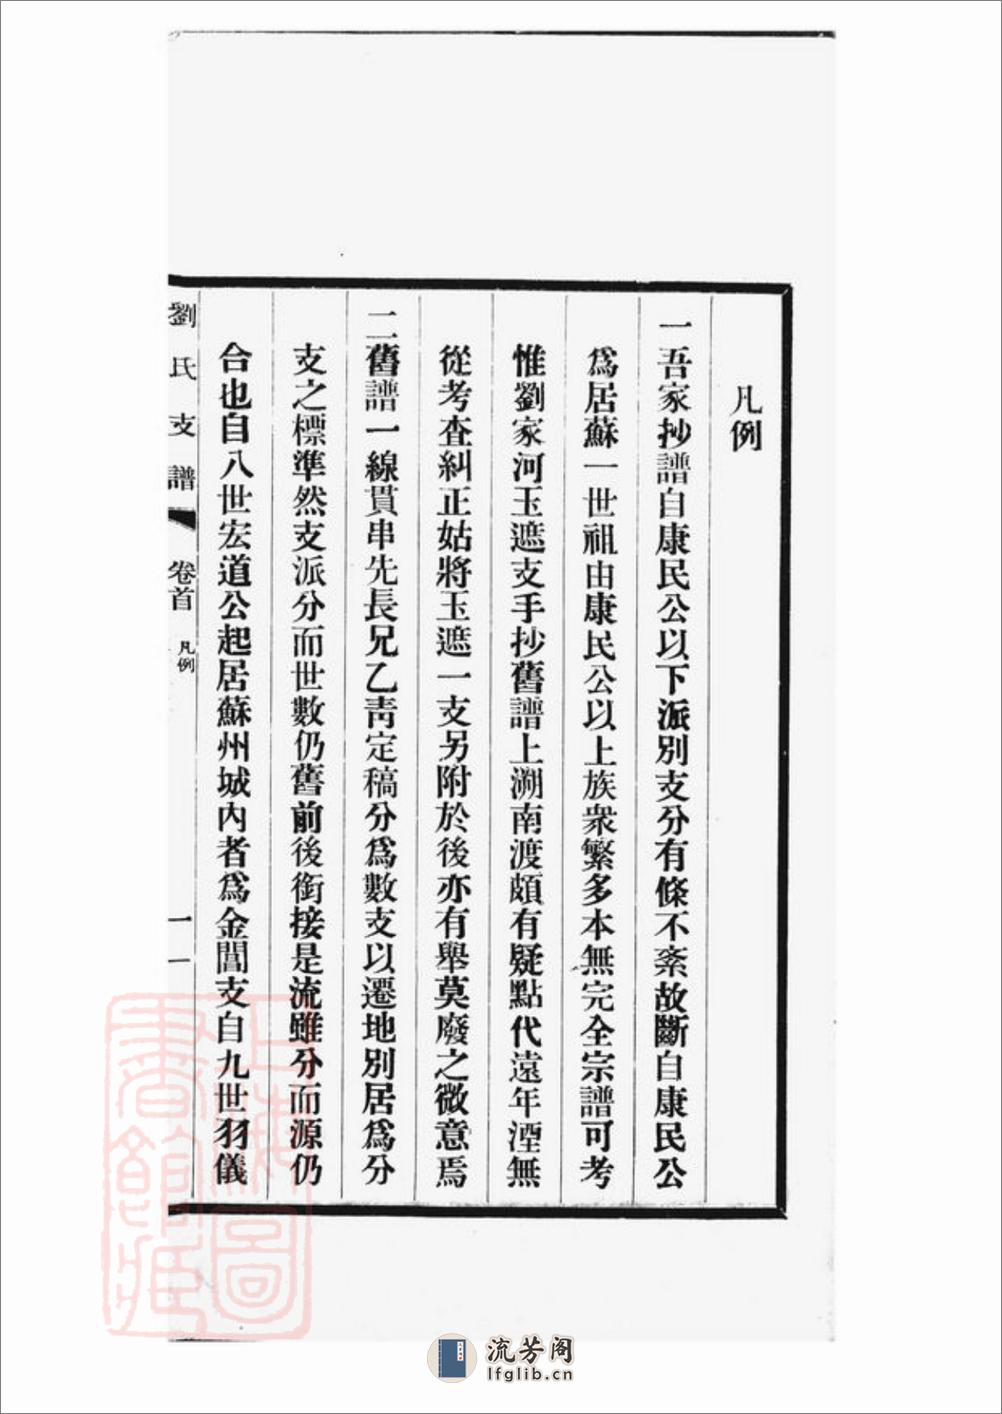 凡例
一吾家抄譜自康民公以下派別支分有條不紊故斷自康民公
爲居蘇一世祖由康民公以上族衆繁多本無完全宗譜可考
惟劉家河玉遮支手抄舊譜上溯南渡頗有疑點代遠年湮無
從考查糾正姑將玉遮一支另附於後亦有舉莫廢之微意焉
二舊譜一線貫串先長兄乙靑定稿分爲數支以遷地別居爲分
支之標準然支派分而世數仍舊前後銜接是流雖分而源仍
合也自八世宏道公起居蘇州城內者爲金閶支自九世羽儀
劉氏支譜 卷首 凡例 一
上海圖書館藏
流芳阁
lfglib.cn